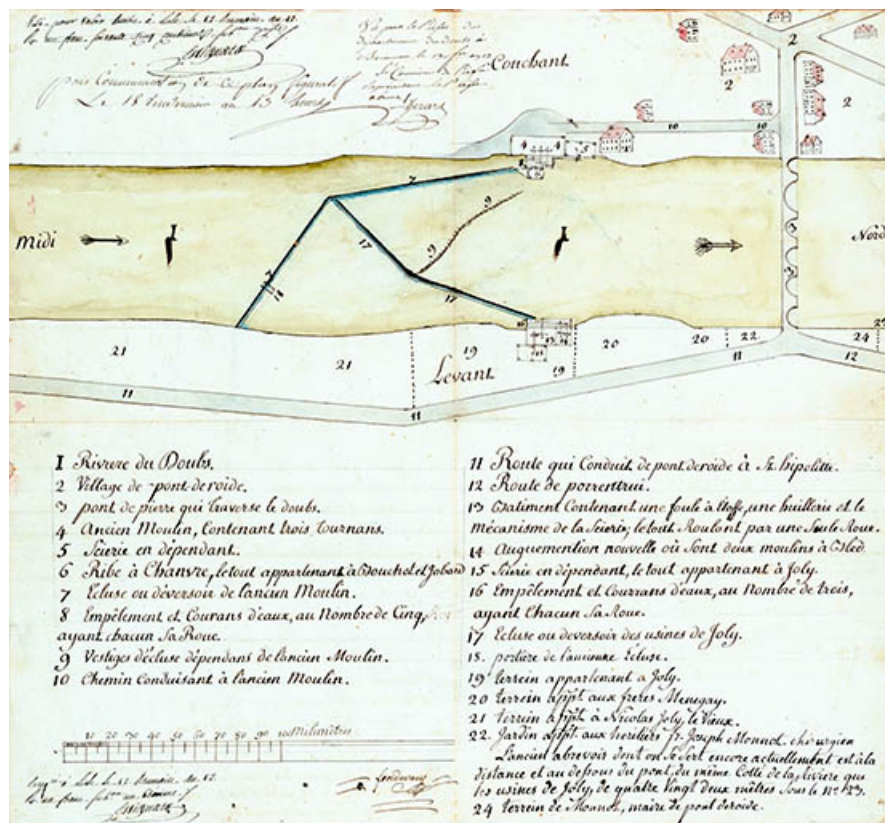 Couchant
pour Communication de ce plan figuratif
Le 18
Midi
Nord
Levant
1 2 2 2 3 3 4 4 5 7 7 8 9 9 10 10 11 11 11 12 17 17 18 19 19 20 20 21 21 22 24
I Riviere du Doubs.
2 Village de pont de roide.
3 pont de pierre qui traverse le doubs.
4 Ancien Moulin, Contenant trois tournans.
5 Scierie en dépendant.
6 Ribe à Chanvre, le tout appartenant à Bouchot et Jobard
7 Ecluse ou déversoir de l'ancien Moulin.
8 Empêlement et Courans d'eaux, au Nombre de Cinq,
ayant chacun Sa Roue.
9 Vestiges d'écluse dépendans de l'ancien Moulin.
10 Chemin Conduisant à l'ancien Moulin.
11 Route qui Conduit de pont de roide à St. hipolitte.
12 Route de porrenttrui.
13 Batiment Contenant une foule à Etoffe, une huillerie et le
mécanisme de la Scierie; le tout Roulant par une Seule Roue.
14 Auguemention nouvelle où Sont deux moulins à bled.
15 Scierie en dépendant, le tout appartenant à Joly.
16 Empêlement et Courrans d'eaux, au Nombre de trois,
ayant Chacun Sa Roue.
17 Ecluse ou deversoir des usines de Joly.
18. portière de l'ancienne Ecluse.
19 terrein appartenant a Joly.
20 terrein appt aux freres Menegay.
21 terrein appt à Nicolas Joly, le Vieux.
22 Jardin appt aux heritiers fr. Joseph Monnot, chirurgien
L'ancien abrevoir dont on Se Sert encore actuellement est à la
distance et au dessous du pont, du même Cotté de la riviere que
les usines de Joly, de quatre Vingt deux mêtres Sous le No. 23.
24 terrein de Monnot, maire de pont de roide.
10 20 30 40 50 60 70 80 90 100 Milimêtres